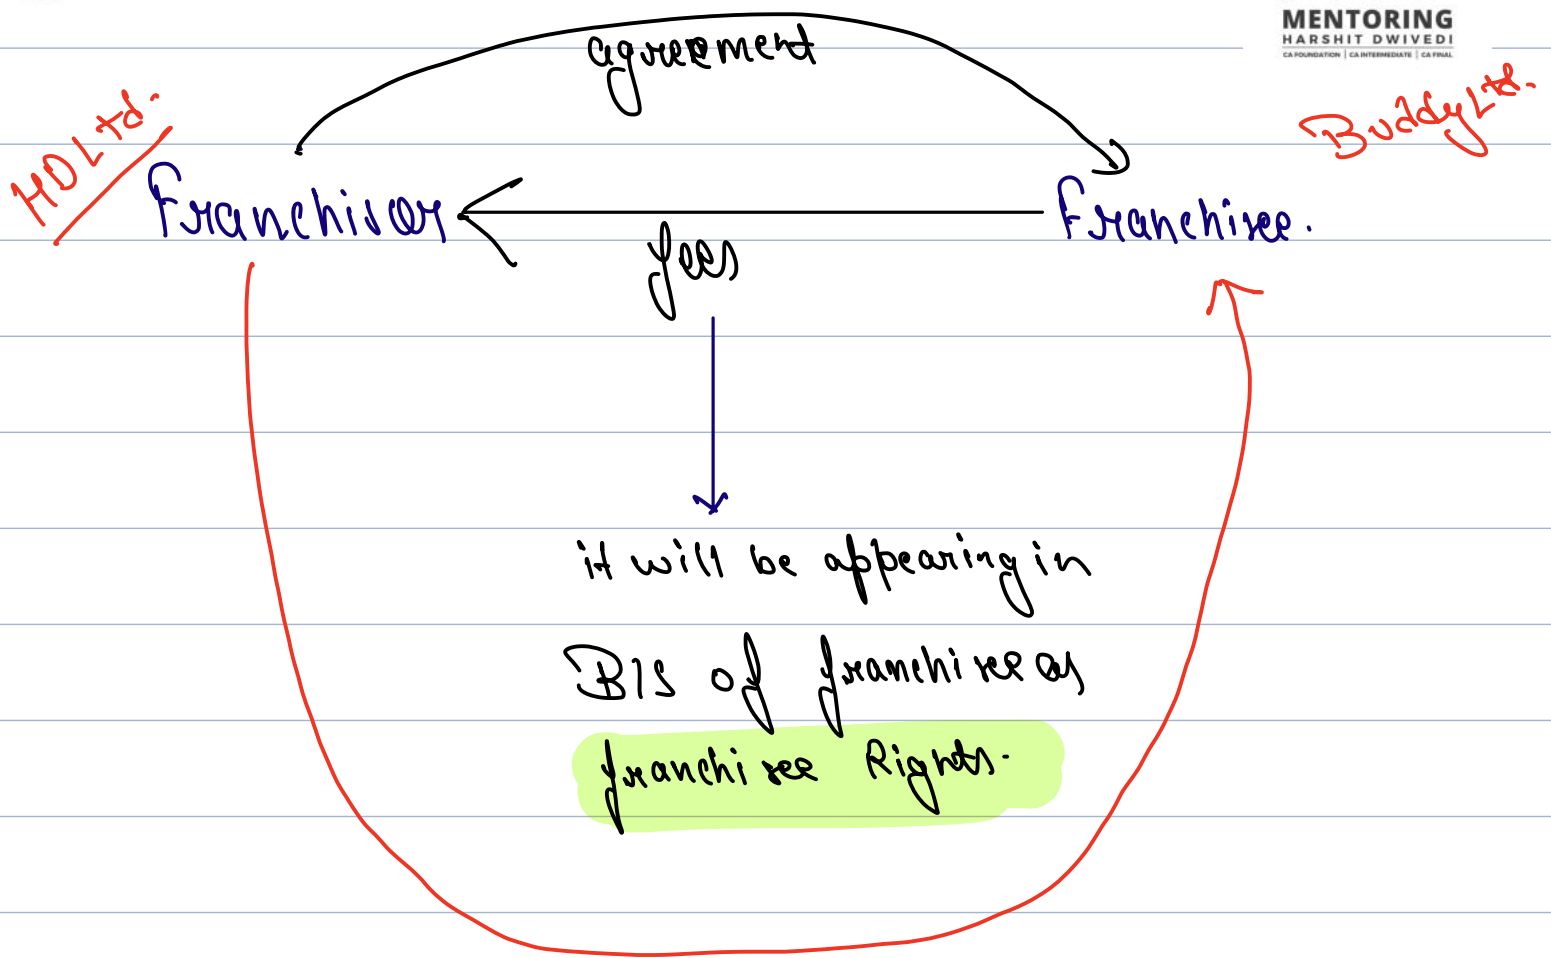 MENTORING
HARSHIT DWIVEDI
CA FOUNDATION | CA INTERMEDIATE | CA FINAL
agreement
HD Ltd.
Buddy Ltd.
Franchisor
Franchisee.
fees
it will be appearing in
B/S of franchisee as
franchisee Rights.